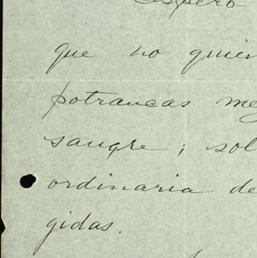 Espero
que no quier
potrancas me
sangre; sol
ordinaria de
gidas.